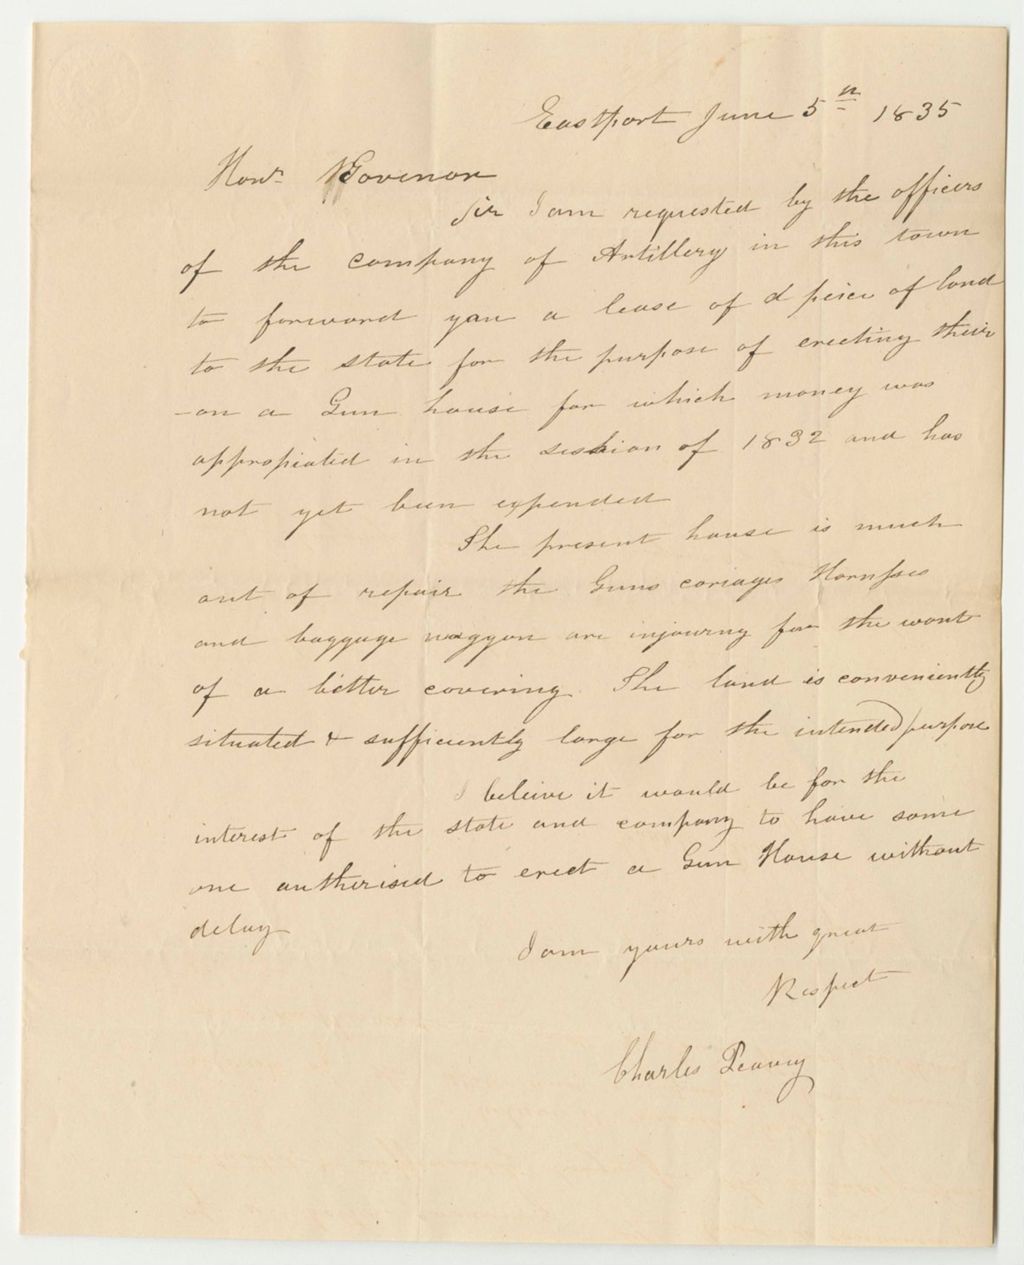 Eastport June 5th 1835
Honr Govenor
Sir I am requested by the officers
of the company of Artillery in this town
to forward you a lease of a peice of land
to the state for the purpose of erecting their
-on a Gun house for which money was
appropiated in the session of 1832 and has
not yet been expended
The present house is much
out of repair the Guns cariages Harnesses
and baggage waggon are injouring for the want
of a better covering. The land is conveniently
situated & sufficiently large for the intended purpose
I beleive it would be for the
interest of the state and company to have some
one autherised to erect a Gun House without
delay
I am yours with great
Respect
Charles Peavey